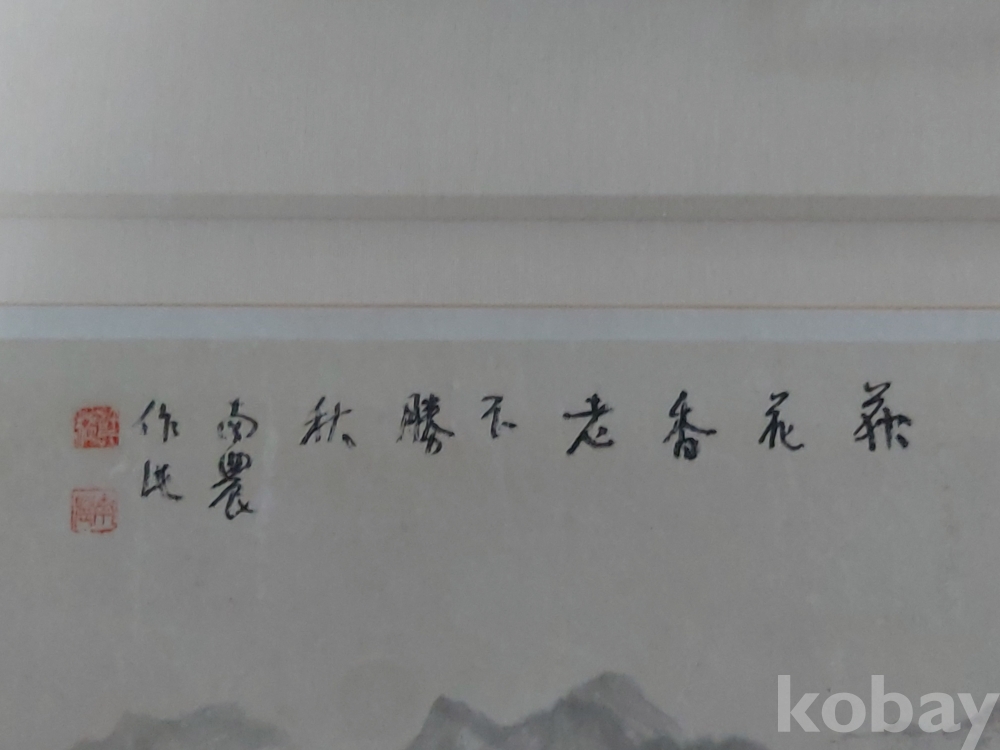 花香老不勝秋
南農
作
kobay